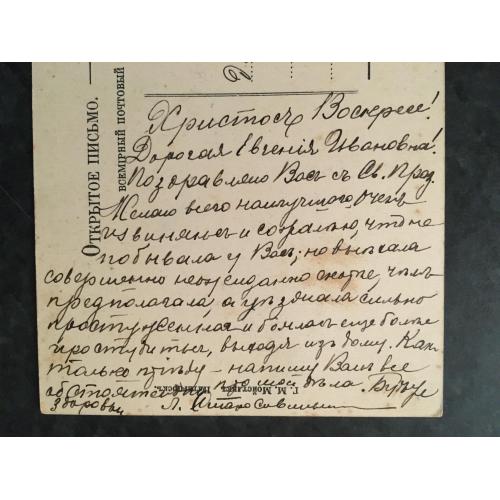 Христосъ Воскресе!
Дорогая Евгенія Ивановна!
Поздравляю Васъ съ Св. Празд.
Желаю всего наилучшаго. Очень
извиняюсь и сожалѣю, что не
побывала у Васъ; но выѣхала
совершенно неожиданно скорѣе чѣмъ
предполагала, а уѣзжала сильно
простуженная и боялась еще болѣе
простудиться, выходя изъ дому. Какъ
только пріѣду - напишу Вамъ все
обстоятельно про мои дѣла. Будьте
здоровы Л.
ОТКРЫТОЕ ПИСЬМО.
ВСЕМІРНЫЙ ПОЧТОВЫЙ